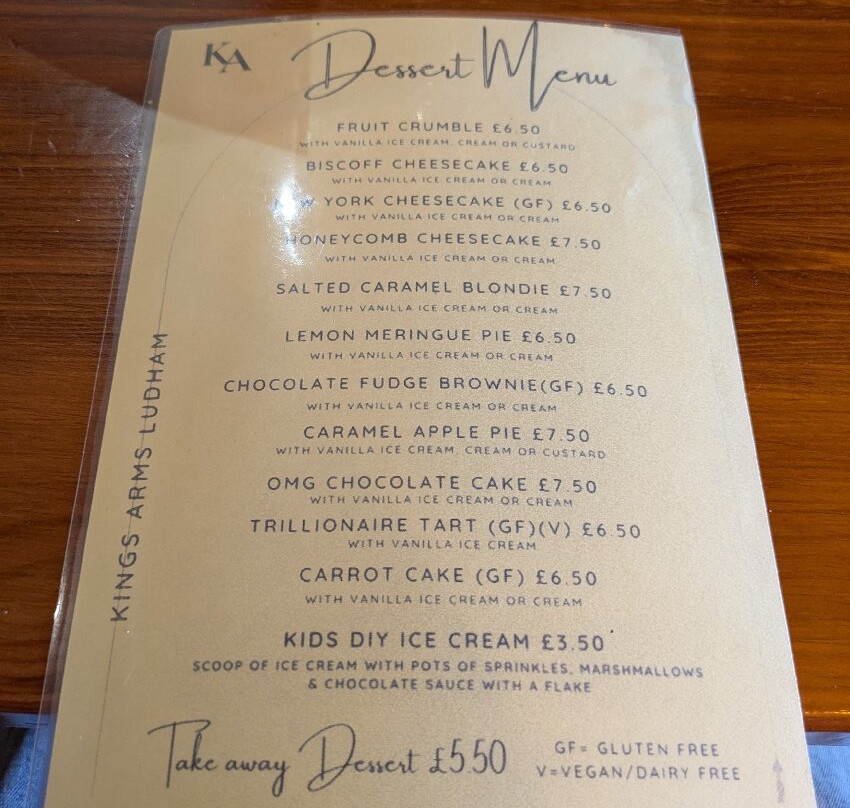 KA
Dessert Menu
FRUIT CRUMBLE £6.50
WITH VANILLA ICE CREAM, CREAM OR CUSTARD
BISCOFF CHEESECAKE £6.50
WITH VANILLA ICE CREAM OR CREAM
NEW YORK CHEESECAKE (GF) £6.50
WITH VANILLA ICE CREAM OR CREAM
HONEYCOMB CHEESECAKE £7.50
WITH VANILLA ICE CREAM OR CREAM
SALTED CARAMEL BLONDIE £7.50
WITH VANILLA ICE CREAM OR CREAM
LEMON MERINGUE PIE £6.50
WITH VANILLA ICE CREAM OR CREAM
CHOCOLATE FUDGE BROWNIE(GF) £6.50
WITH VANILLA ICE CREAM OR CREAM
CARAMEL APPLE PIE £7.50
WITH VANILLA ICE CREAM, CREAM OR CUSTARD
OMG CHOCOLATE CAKE £7.50
WITH VANILLA ICE CREAM OR CREAM
TRILLIONAIRE TART (GF)(V) £6.50
WITH VANILLA ICE CREAM
CARROT CAKE (GF) £6.50
WITH VANILLA ICE CREAM OR CREAM
KIDS DIY ICE CREAM £3.50
SCOOP OF ICE CREAM WITH POTS OF SPRINKLES, MARSHMALLOWS
& CHOCOLATE SAUCE WITH A FLAKE
Take away Dessert £5.50
GF= GLUTEN FREE
V=VEGAN/DAIRY FREE
KINGS ARMS LUDHAM